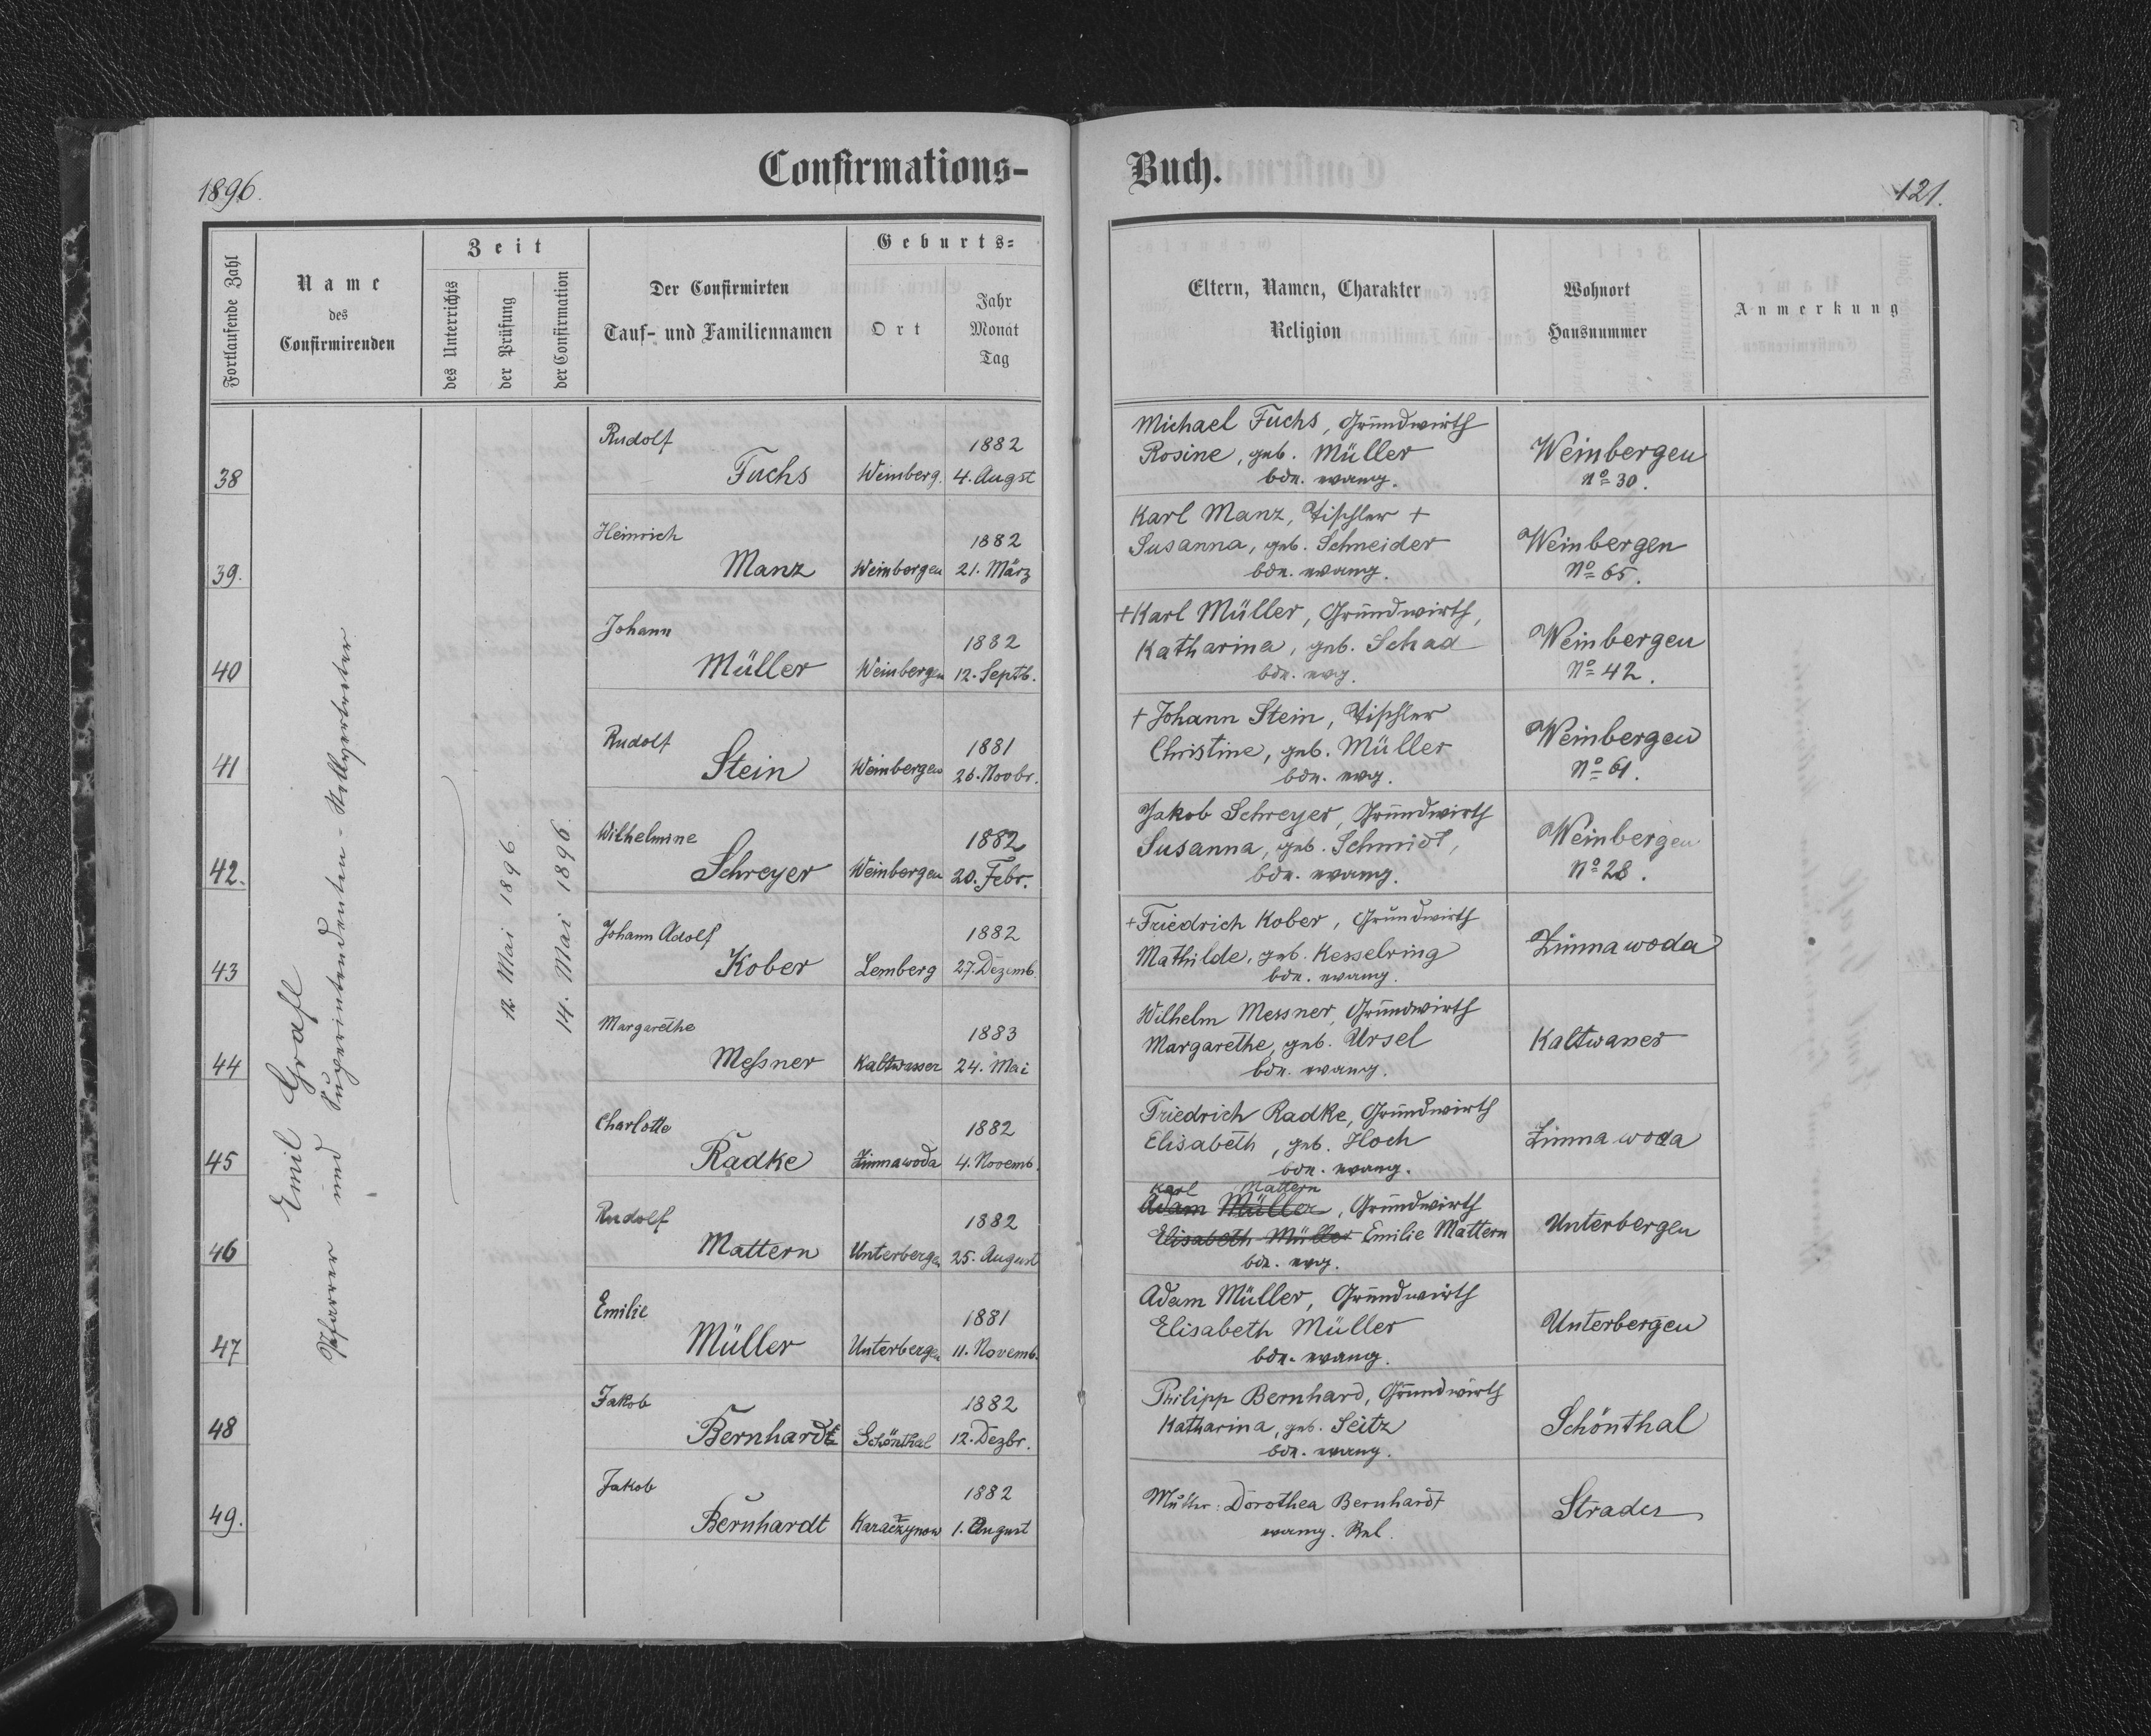 1896.
Confirmations-
Buch.
121.
Fortlaufende Zahl
Name
des
Confirmirenden
Zeit
des Unterrichts
der Prüfung
der Confirmation
Der Confirmirten
Tauf- und Familiennamen
Geburts-
Ort
Jahr
Monat
Tag
Eltern, Namen, Charakter
Religion
Wohnort
Hausnummer
Anmerkung
Emil Grafl
Pfarrer und Superintendenten-Stellvertreter
12. Mai 1896.
14. Mai 1896.
38
Rudolf
Fuchs
Weinberg.
1882
4. Augst
Michael Fuchs, Grundwirth
Rosine, geb. Müller
bde. evang.
Weinbergen
No 30.
39.
Heinrich
Manz
Weinbergen
1882
21. März
Karl Manz, Tischler +
Susanna, geb. Schneider
bde. evang.
Weinbergen
No 65.
40
Johann
Müller
Weinbergen
1882
12. Septb.
+ Karl Müller, Grundwirth,
Katharina, geb. Schad
bde. evg.
Weinbergen
No 42.
41
Rudolf
Stein
Weinbergen
1881
26. Novbr.
+ Johann Stein, Tischler
Christine, geb. Müller
bde. evg.
Weinbergen
No 61.
42.
Wilhelmine
Schreyer
Weinbergen
1882
20. Febr.
Jakob Schreyer, Grundwirth
Susanna, geb. Schmidt,
bde. evang.
Weinbergen
No 28.
43
Johann Adolf
Kober
Lemberg
1882
27. Dezemb.
+ Friedrich Kober, Grundwirth
Mathilde, geb. Kesselring
bde. evang.
Zimnawoda
44
Margarethe
Meſsner
Kaltwasser
1883
24. Mai
Wilhelm Messner, Grundwirth
Margarethe, geb. Ursel
bde. evang.
Kaltwasser
45
Charlotte
Radke
Zimnawoda
1882
4. Novemb.
Friedrich Radke, Grundwirth
Elisabeth, geb. Hoch
bde. evang.
Zimnawoda
46
Rudolf
Mattern
Unterbergen
1882
25. August
Karl Mattern
Adam Müller, Grundwirth
Elisabeth Müller Emilie Mattern
bde. evg.
Unterbergen
47
Emilie
Müller
Unterbergen
1881
11. Novemb.
Adam Müller, Grundwirth
Elisabeth Müller
bde. evang.
Unterbergen
48
Jakob
Bernhardt
Schönthal
1882
12. Dezbr.
Philipp Bernhard, Grundwirth
Katharina, geb. Seitz
bde. evang.
Schönthal
49.
Jakob
Bernhardt
Karaczynow
1882
1. August
Mutter: Dorothea Bernhardt
evang. Rel.
Stradcz